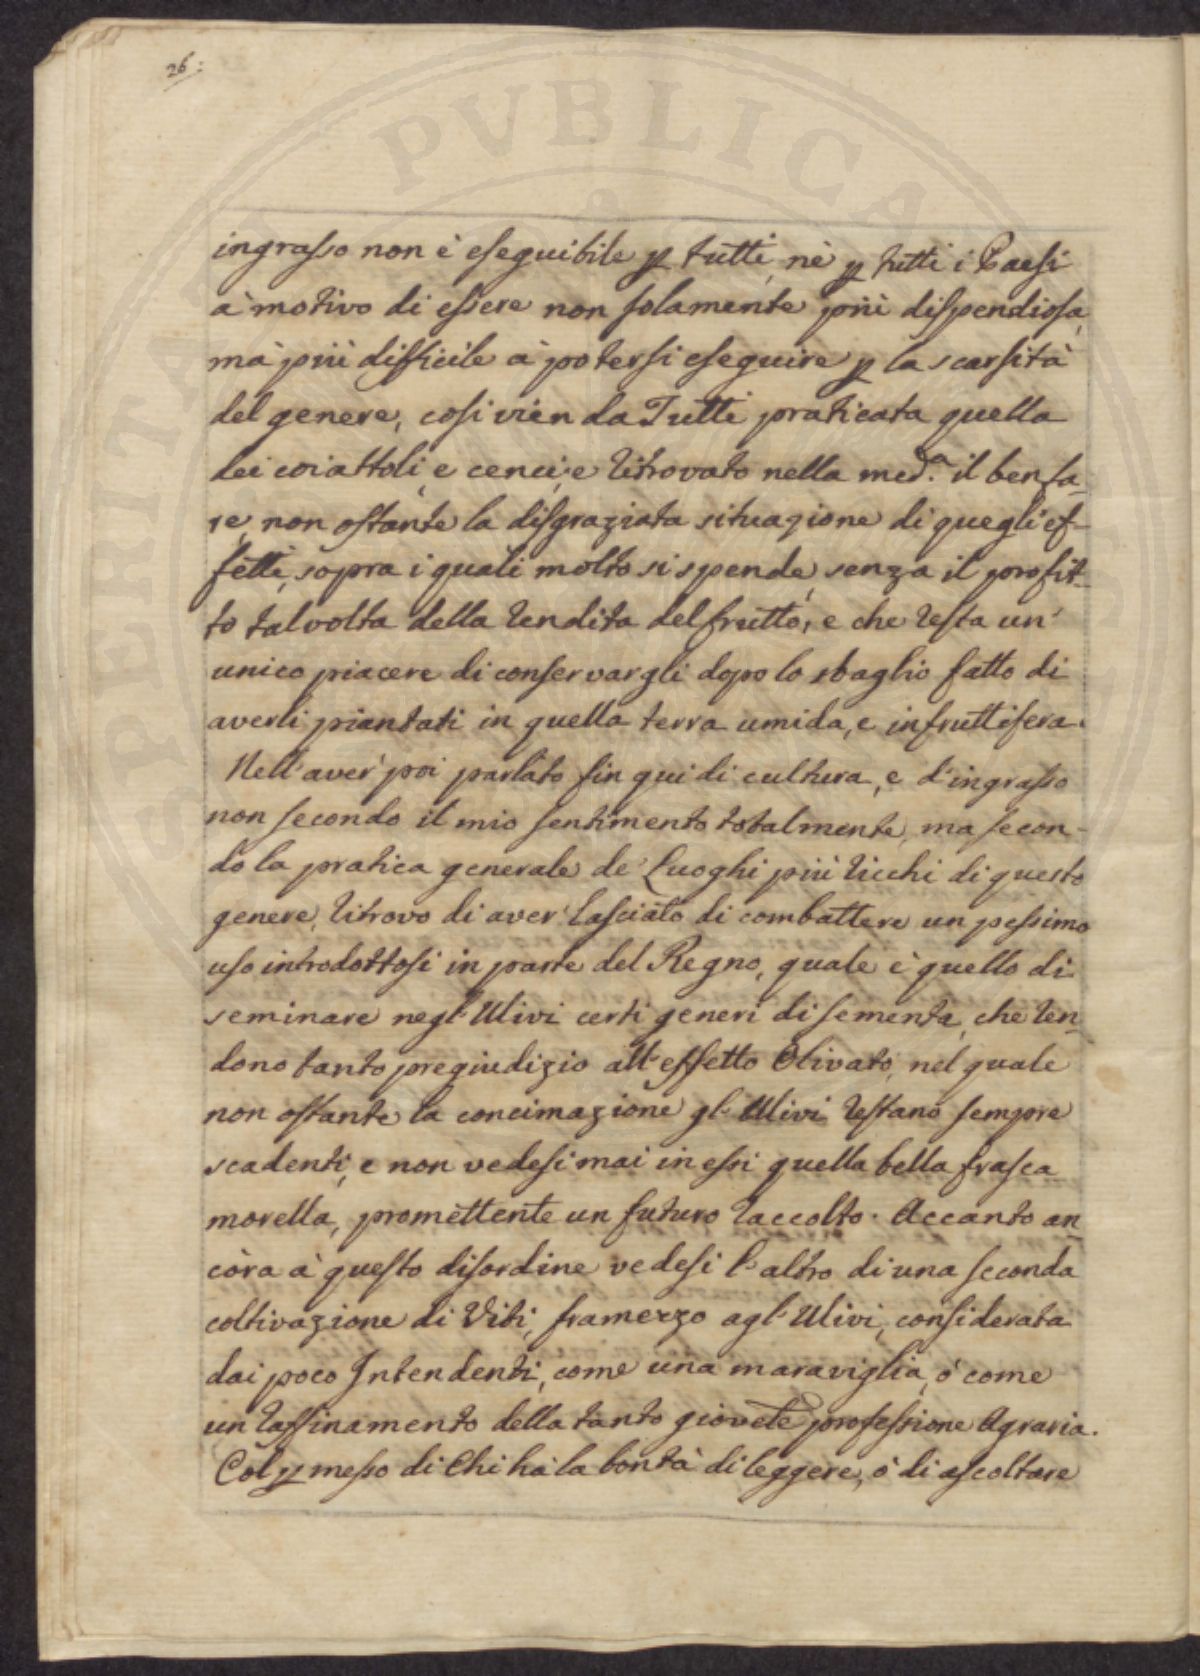 26:
PROSPERITATI PVBLICAE
ingrasso non è eseguibile p tutti, nè p tutti i Paesi
à motivo di essere non solamente più dispendiosa,
mà più difficile à potersi eseguire p la scarsità
del genere, così vien da Tutti praticata quella
dei coiattoli, e cenci, e ritrovato nella med.a il benfa-
re, non ostante la disgraziata situazione di quegli ef-
fetti, sopra i quali molto si spende, senza il profit-
to talvolta della rendita del frutto, e che resta un'
unico piacere di conservargli dopo lo sbaglio fatto di
averli piantati in quella terra umida, e infruttifera.
Nell'aver poi parlato fin qui di cultura, e d'ingrasso
non secondo il mio sentimento totalmente, ma secon-
do la pratica generale de' Luoghi più ricchi di questo
genere, ritrovo di aver lasciato di combattere un pessimo
uso introdottosi in parte del Regno, quale è quello di
seminare negl'Ulivi certi generi di sementa, che ren-
dono tanto pregiudizio all'effetto Olivato, nel quale
non ostante la concimazione gl'Ulivi restano sempre
scadenti, e non vedesi mai in essi quella bella frasca
morella, promettente un futuro raccolto. Accanto an
còra à questo disordine vedesi l'altro di una seconda
coltivazione di Viti, framezzo agl'Ulivi, considerata
dai poco Intendenti, come una maraviglia, ò come
un raffinamento della tanto giovete professione Agraria.
Col pmesso di Chi hà la bontà di leggere, ò di ascoltare